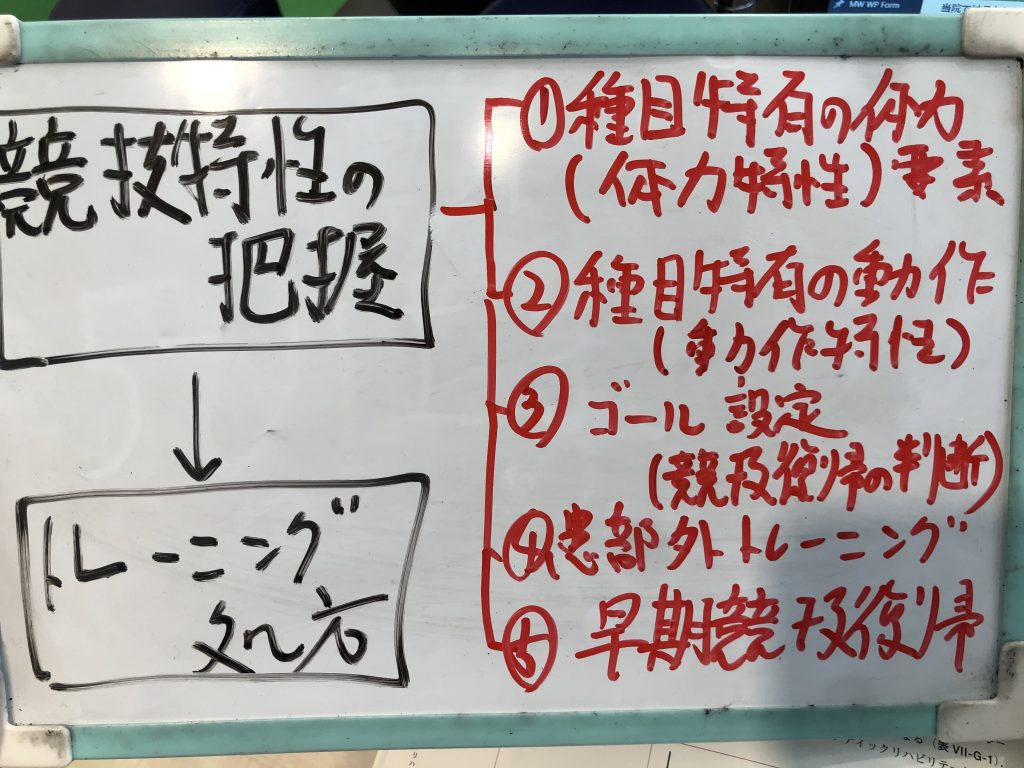 MW WP Form
競技特性の
把握
トレーニング
処方
①種目特有の体力
(体力特性)要素
②種目特有の動作
(動作特性)
③ゴール設定
(競技復帰の判断)
④患部外トレーニング
⑤早期競技復帰
なる(表VII-G-1).